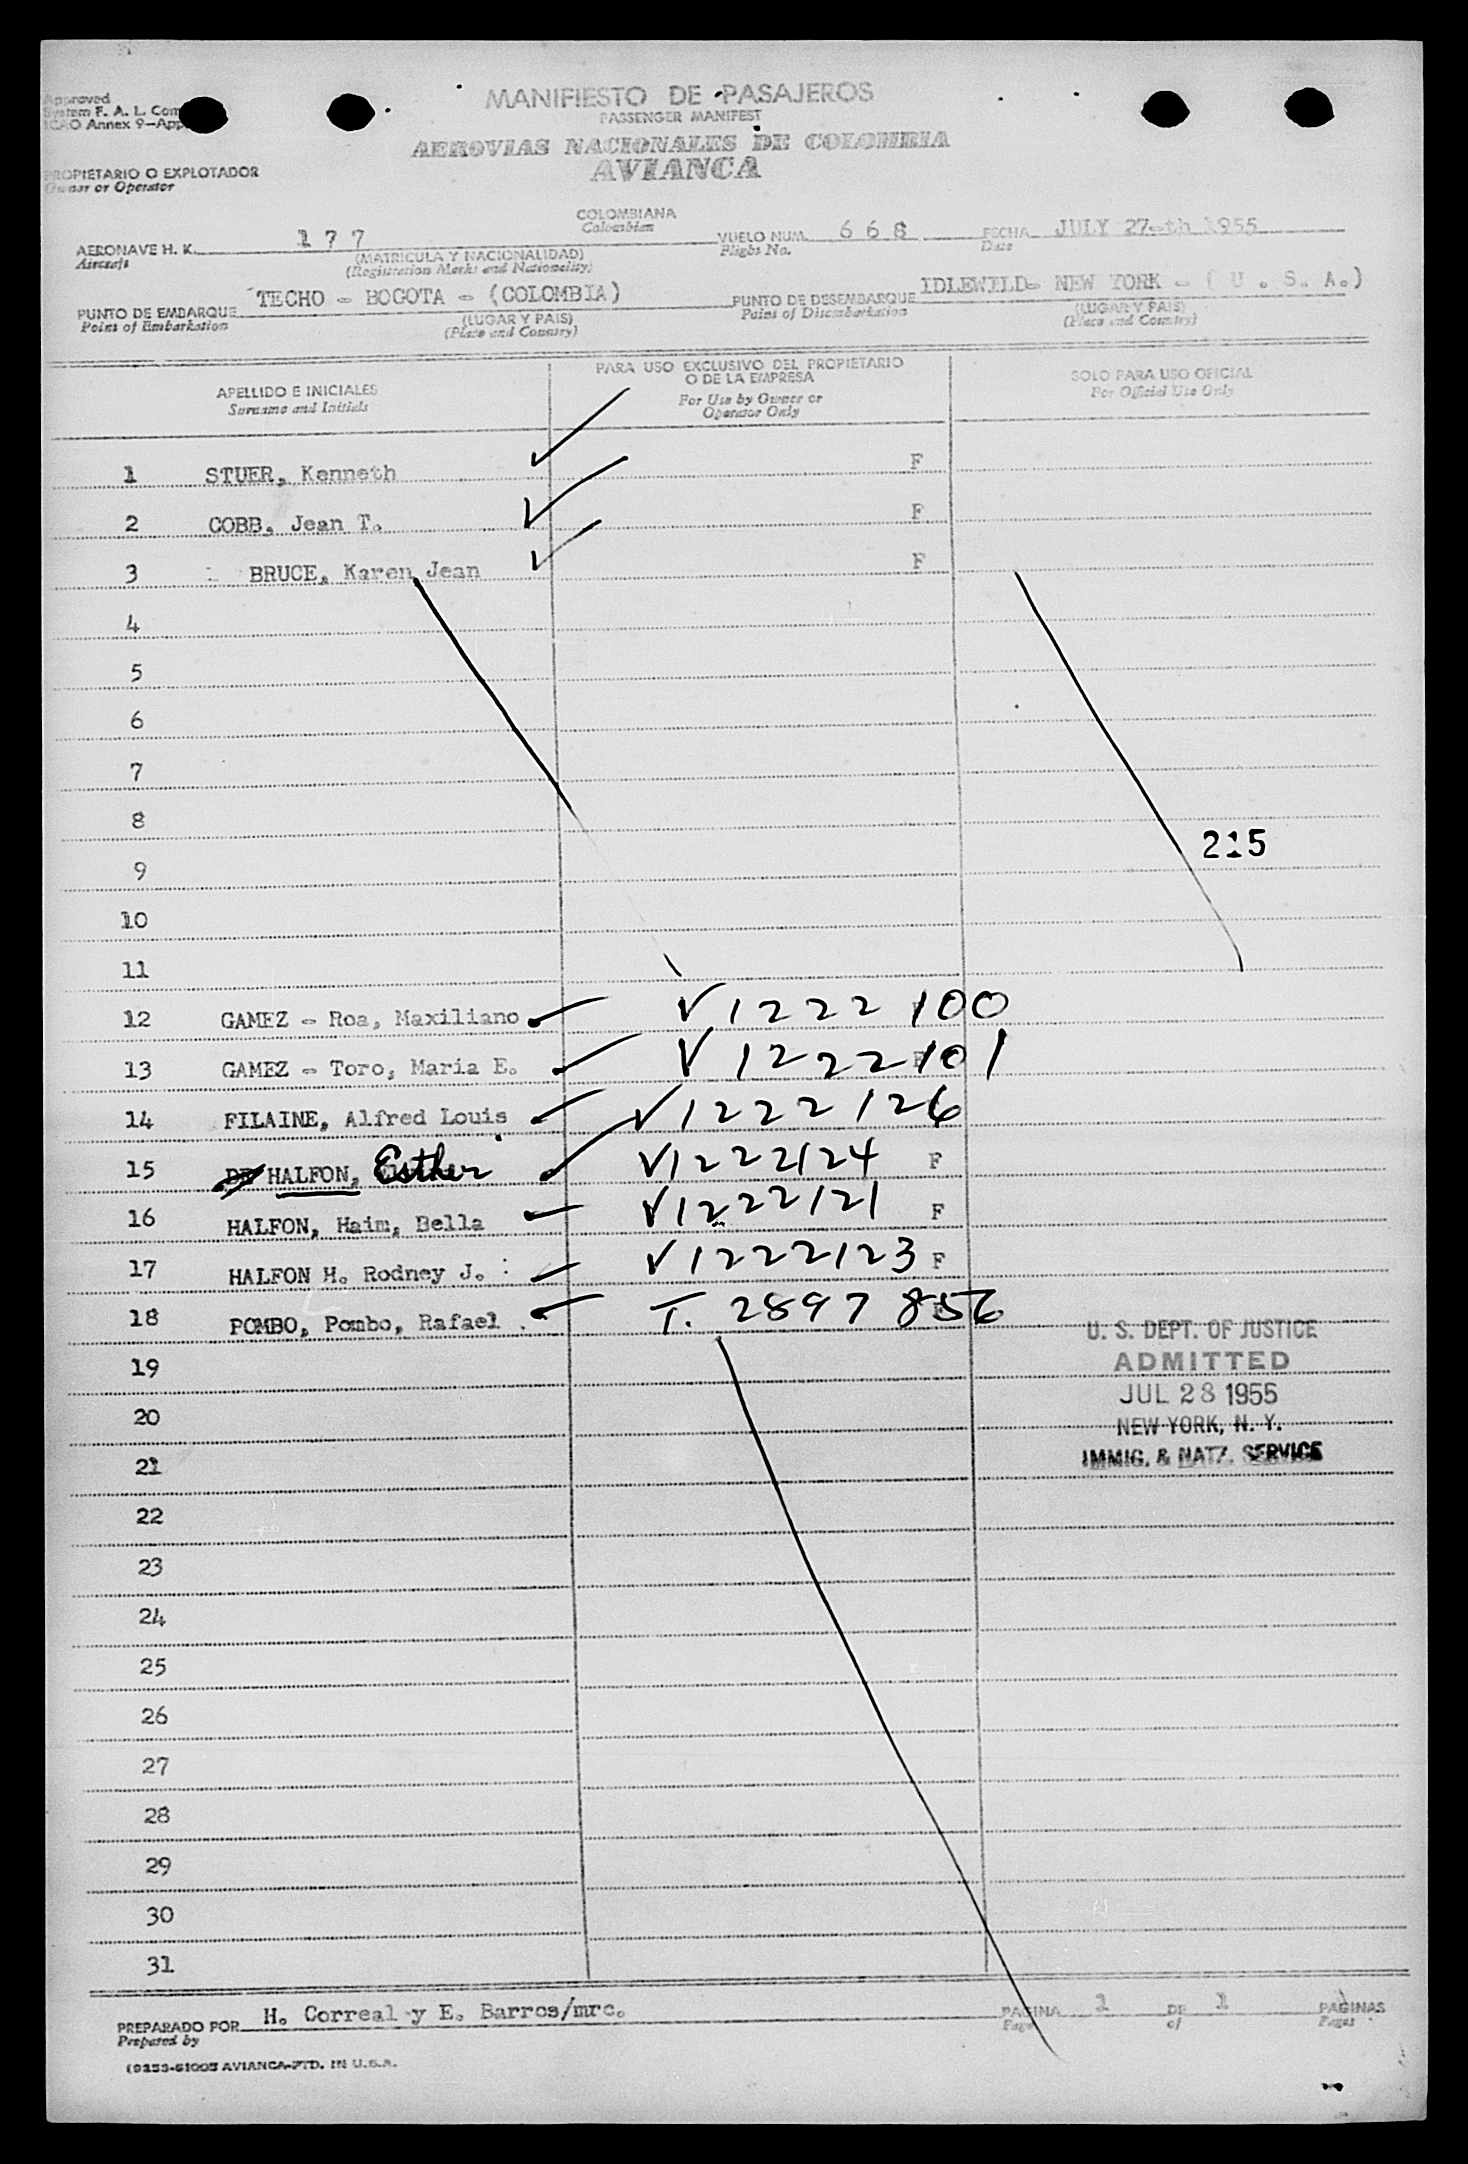 Approved
System F. A. L. Com
ICAO Annex 9-App
MANIFIESTO DE PASAJEROS
PASSENGER MANIFEST
AEROVIAS NACIONALES DE COLOMBIA
AVIANCA
PROPIETARIO O EXPLOTADOR
Owner or Operator
COLOMBIANA
Colombian
AERONAVE H. K. 177 VUELO NUM. 668 FECHA JULY 27-th 1955
Aircraft (MATRICULA Y NACIONALIDAD) Flight No. Date
(Registration Marks and Nationality)
PUNTO DE EMBARQUE TECHO - BOGOTA - (COLOMBIA) PUNTO DE DESEMBARQUE IDLEWILD- NEW YORK - ( U . S. A.)
Point of Embarkation (LUGAR Y PAIS) Point of Disembarkation (LUGAR Y PAIS)
(Place and Country) (Place and Country)
APELLIDO E INICIALES PARA USO EXCLUSIVO DEL PROPIETARIO SOLO PARA USO OFICIAL
Surname and Initials O DE LA EMPRESA For Official Use Only
For Use by Owner or
Operator Only
1 STUER, Kenneth F
2 COBB, Jean T. F
3 BRUCE, Karen Jean F
4
5
6
7
8
215
9
10
11
12 GAMEZ - Roa, Maxiliano V1222100
13 GAMEZ - Toro, Maria E. V1222101
14 FILAINE, Alfred Louis V1222126
15 DE HALFON, Esther V1222124 F
16 HALFON, Haim, Bella V1222121 F
17 HALFON H. Rodney J. V1222123 F
18 POMBO, Pombo, Rafael T. 2897856
U. S. DEPT. OF JUSTICE
19 ADMITTED
JUL 28 1955
20 NEW YORK, N. Y.
21 IMMIG. & NATZ. SERVICE
22
23
24
25
26
27
28
29
30
31
PREPARADO POR H. Correal y E. Barros/mrc. PAGINA 1 DE 1 PAGINAS
Prepared by Page of Pages
AVIANCA-PTD. IN U.S.A.